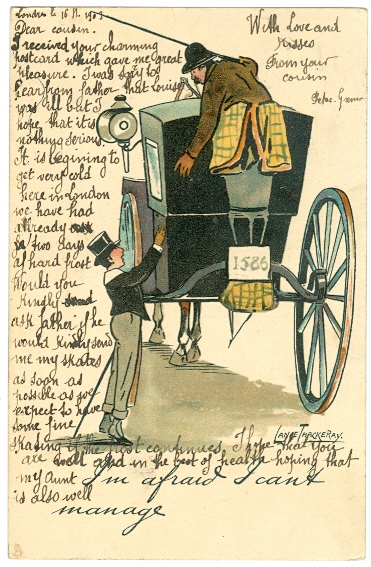 London le 16 11. 1903
Dear cousin.
I received your charming
postcard which gave me great
pleasure. I was sorry to
hear from father that Louise
was ill but I
hope that it is
nothing serious
It is begining to
get very cold
here in London
we have had
already
two days
of hard frost
Would you
kindly
ask father if he
would kindly send
me my skates
as soon as
possible as we
expect to have
some fine
skating if the frost continues. I hope that you
are well and in the best of health hoping that
my Aunt
is also well
With Love and
Kisses
From your
cousin
1586
LANCE THACKERAY.
I'm afraid I cant
manage